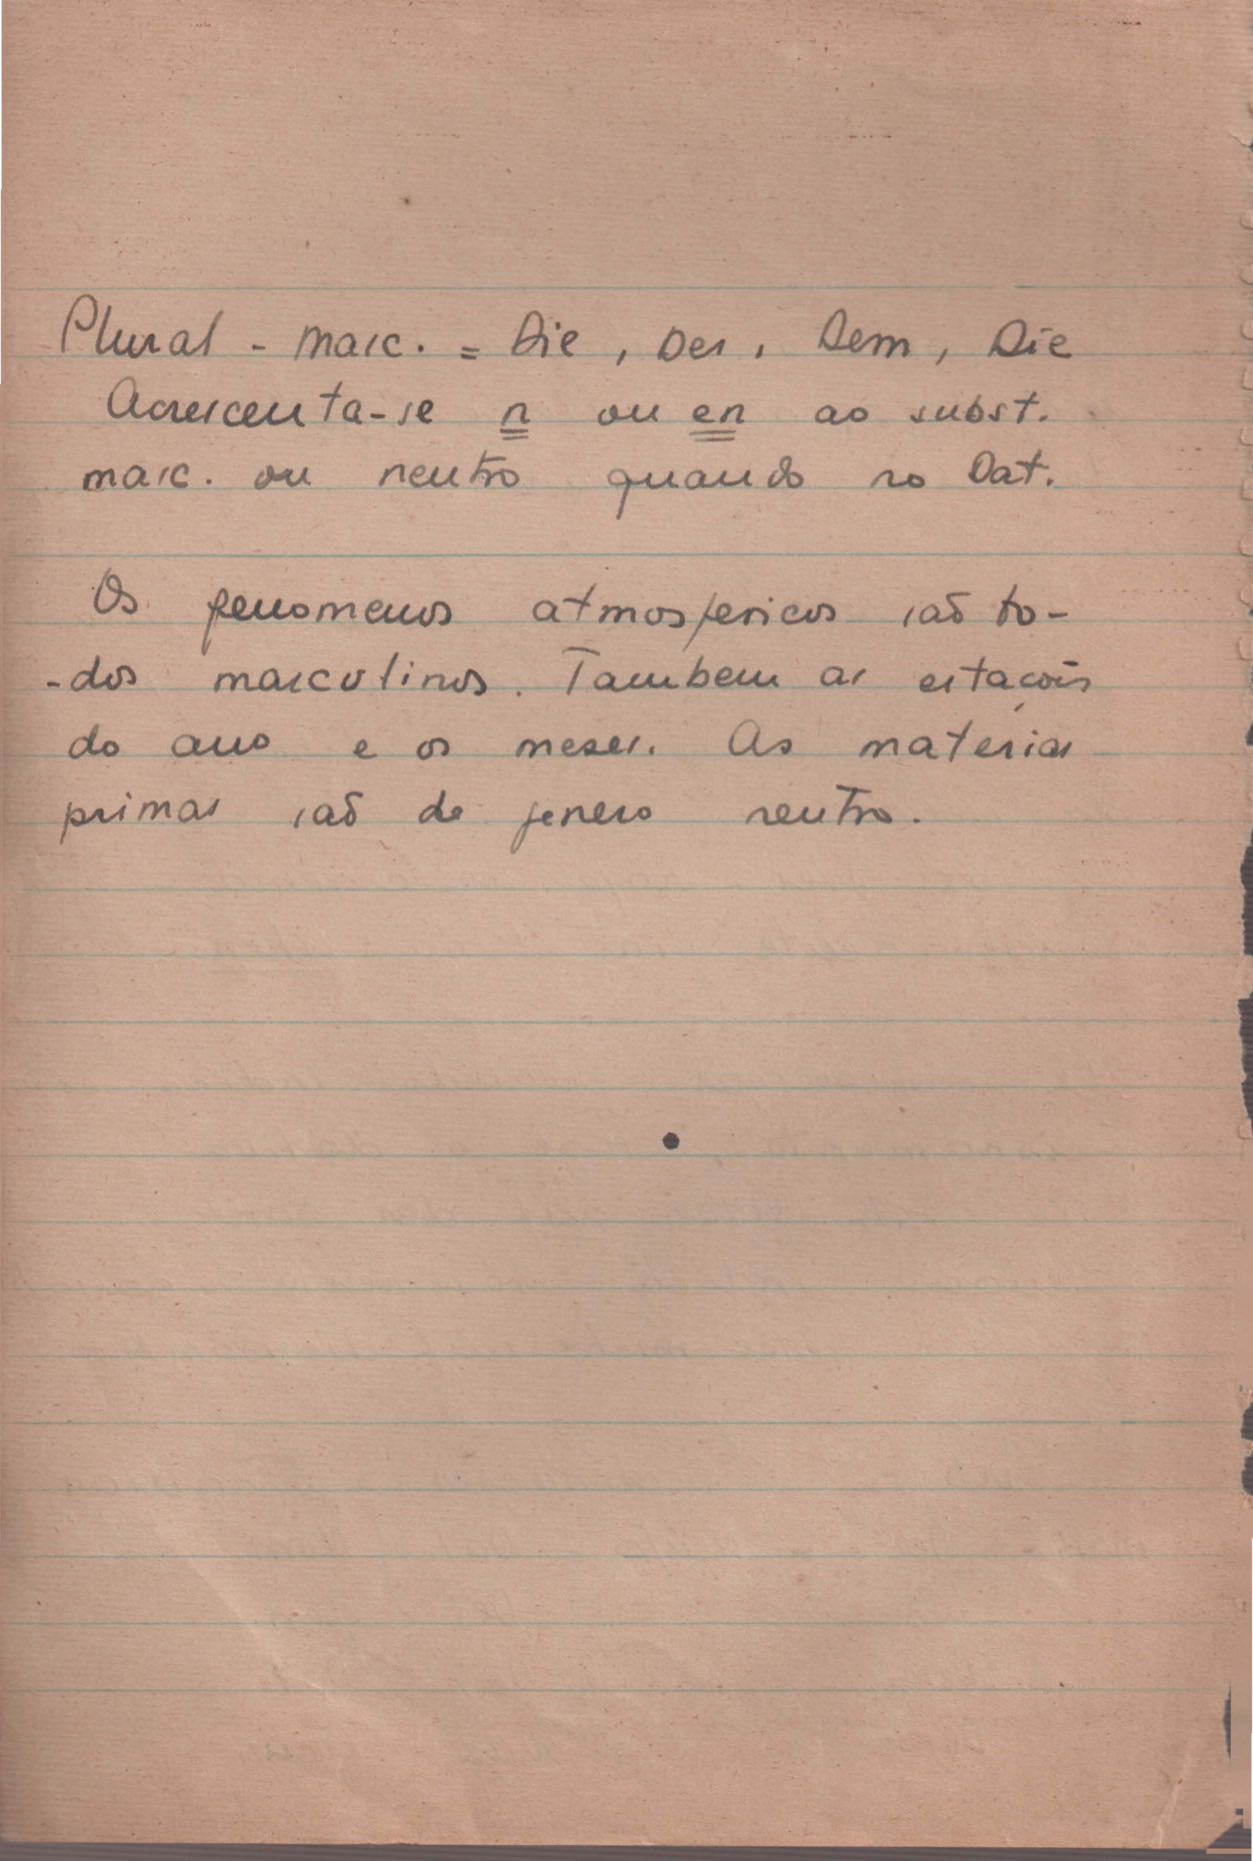 Plural - masc. = Die, Der, Dem, Die
Acrescenta-se n ou en ao subst.
masc. ou neutro quando no Dat.
Os fenomenos atmosfericos saõ to-
-dos masculinos. Tambem as estaçoẽs
do ano e os meses. As materias
primas saõ do genero neutro.